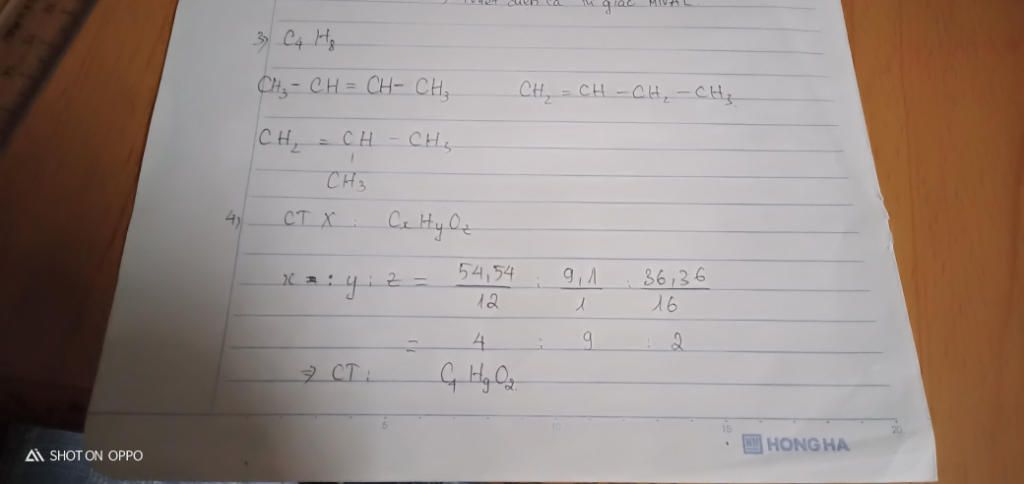 thiết diện là tứ giác MNAL
3) C4 H8
CH3 - CH = CH - CH3 CH2 = CH - CH2 - CH3
CH2 = CH - CH3
CH3
4) CT X : Cx Hy Oz
x : y : z = 54,54/12 : 9,1/1 : 36,36/16
= 4 : 9 : 2
=> CT : C4 H9 O2
5 10 15 20
HONG HA
SHOT ON OPPO